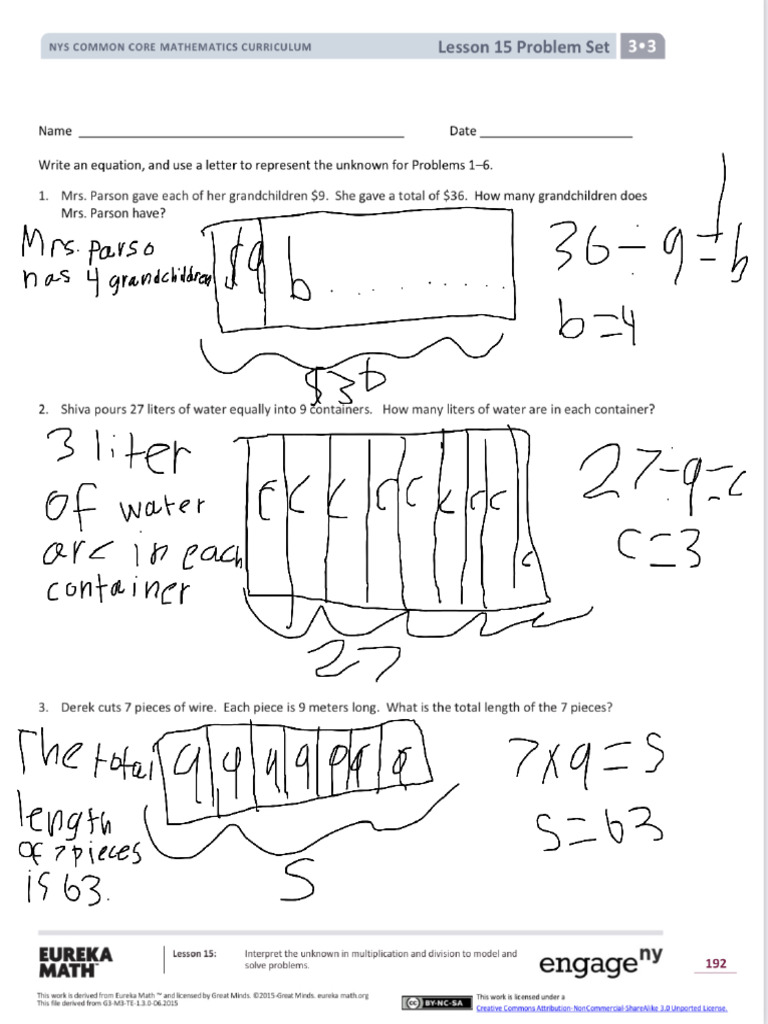 NYS COMMON CORE MATHEMATICS CURRICULUM
Lesson 15 Problem Set 3•3
Name
Date
Write an equation, and use a letter to represent the unknown for Problems 1–6.
1. Mrs. Parson gave each of her grandchildren $9. She gave a total of $36. How many grandchildren does
Mrs. Parson have?
Mrs. parso
has 4 grandchildren
$9 b . . . . . . . . .
$36
36 ÷ 9 = b
b=4
2. Shiva pours 27 liters of water equally into 9 containers. How many liters of water are in each container?
3 liter
of water
are in each
container
c c c c c c c c c
27
27÷9=c
c=3
3. Derek cuts 7 pieces of wire. Each piece is 9 meters long. What is the total length of the 7 pieces?
The total
length
of 7 pieces
is 63.
9 9 9 9
S
7x9=S
S=63
EUREKA
MATH™
Lesson 15:
Interpret the unknown in multiplication and division to model and
solve problems.
engage ny
192
This work is derived from Eureka Math ™ and licensed by Great Minds. ©2015-Great Minds. eureka math.org
This file derived from G3-M3-TE-1.3.0-06.2015
CC BY-NC-SA
This work is licensed under a
Creative Commons Attribution-NonCommercial-ShareAlike 3.0 Unported License.